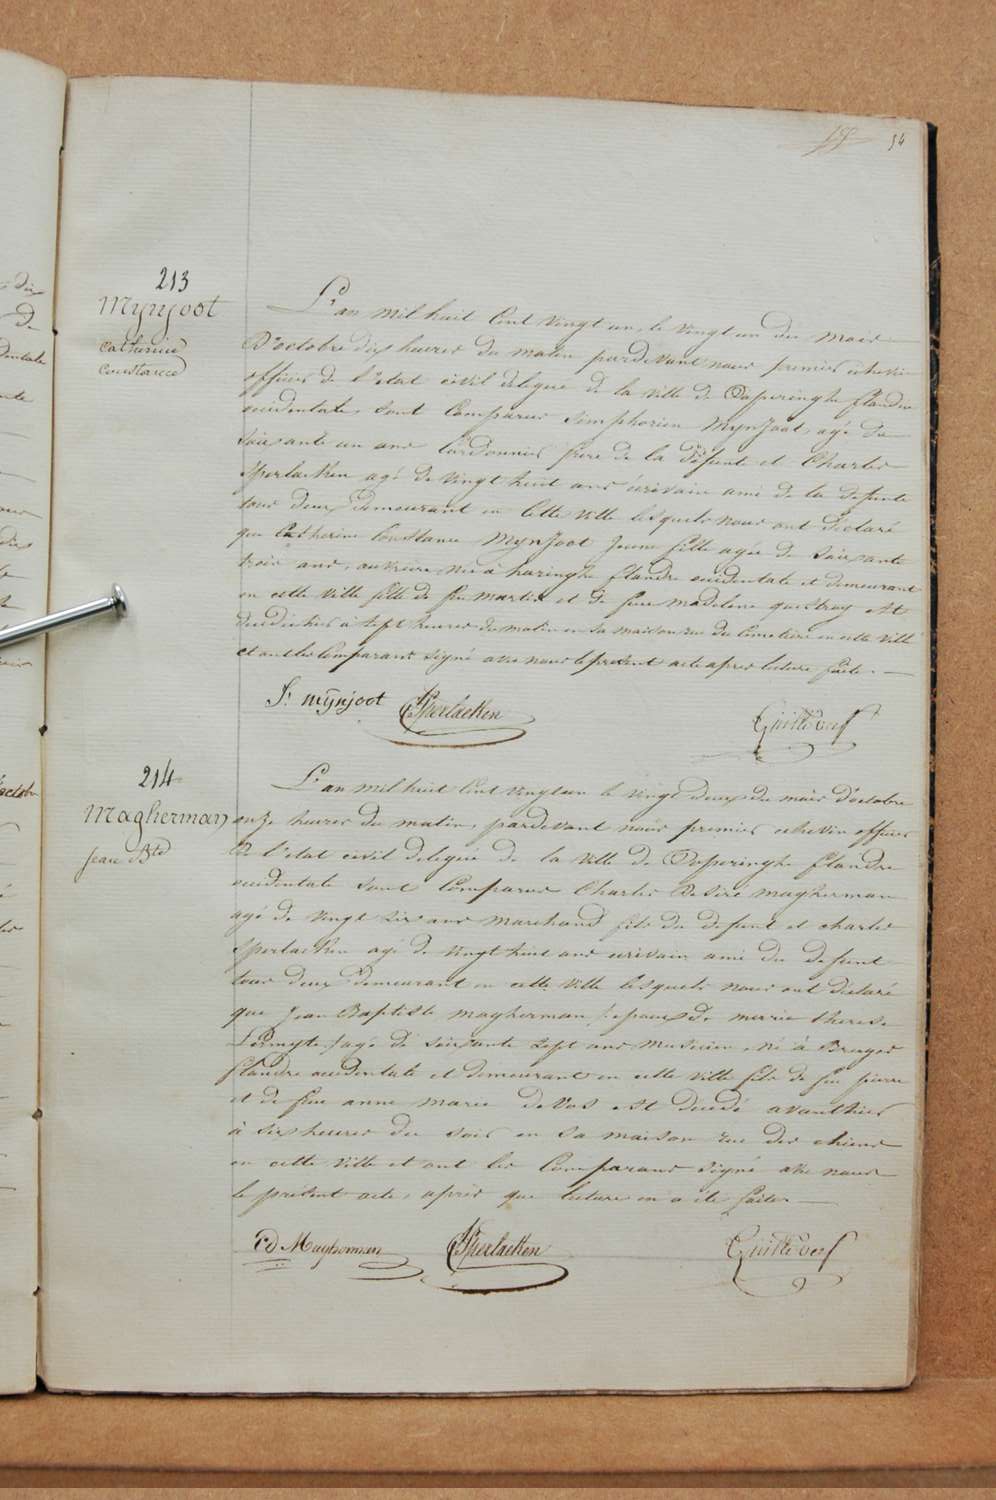 54
213
Mynjoot
Catherine
Constance
L'an mil huit cent vingt un, le vingt un du mois
D'octobre dix heures du matin pardevant nous premier echevin
officier de l'etat civil delegué de la ville de Poperinghe flandre
occidentale, sont comparus Simphorien Mynjoot, agé de
soixante un ans cordonnier frere de la défunte et Charles
Sperlaeken agé de vingt huit ans écrivain ami de la defunte
tous deux demeurant en cette ville lesquels nous ont déclaré
que Catherine Constance Mynjoot jeune fille agée de soixante
trois ans, ouvriere, née à haringhe flandre occidentale et demeurant
en cette ville fille de feu Martin et de feue madeleine questroy est
decedée hier à sept heures du matin en sa maison rue du Cimetiere en cette ville
et ont les comparans signé avec nous le present acte apres lecture faite.
S: mynjoot CSperlaeken
214
Magherman
Jean Bte
L'an mil huit cent vingt un le vingt deux du mois d'octobre
onze heures du matin, pardevant nous premier echevin officier
de l'etat civil delegué de la ville de Poperinghe flandre
occidentale sont comparus Charles Desiré magherman
agé de vingt six ans marchand fils du defunt et charles
Sperlaeken agé de vingt huit ans ecrivain ami du defunt
tous deux demeurant en cette ville lesquels nous ont déclaré
que Jean Baptiste magherman, (epoux de marie therese
Lermyte,) agé de soixante sept ans musicien, né à Bruges
flandre occidentale et demeurant en cette ville fils de feu pierre
et de feue anne marie deVos est décedé avant hier
à six heures du soir en sa maison rue des chiens
en cette ville et ont les comparans signé avec nous
le présent acte, aprés que lecture en a été faite.
CD Magherman CSperlaeken